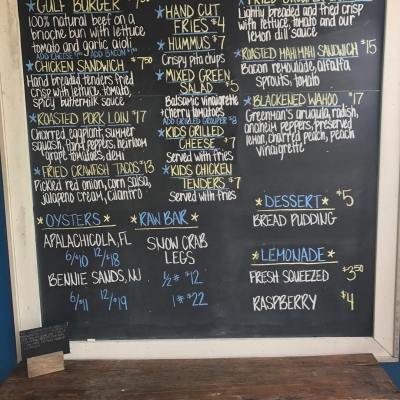 ★ GULF BURGER
100% natural beef on a
brioche bun with lettuce
tomato and garlic aioli
★ CHICKEN SANDWICH $7.50
Hand breaded tenders fried
crisp with lettuce, tomato,
spicy buttermilk sauce
★ ROASTED PORK LOIN $17
Charred eggplant, summer
squash, hand peppers, heirloom
grape tomatoes, demi
★ FRIED CRAWFISH TACOS $13
Pickled red onion, corn salsa,
jalapeno cream, cilantro
★ OYSTERS ★
APALACHICOLA, FL
6/$10 12/$18
BENNIE SANDS, NJ
6/$11 12/$19
★ HAND CUT
FRIES $4
★ HUMMUS $7
Crispy pita chips
★ MIXED GREEN
SALAD $5
Balsamic vinaigrette
+ cherry tomatoes
ADD GRILLED GROUPER $8
★ KIDS GRILLED
CHEESE $7
Served with fries
★ KIDS CHICKEN
TENDERS $7
Served with fries
★ RAW BAR ★
SNOW CRAB
LEGS
½# $12
1# $22
Lightly breaded and fried crisp
with lettuce, tomato and our
lemon dill sauce
★ ROASTED MAHI MAHI SANDWICH $15
Bacon remoulade, alfalfa
sprouts, tomato
★ BLACKENED WAHOO $17
Greenman's arugula, radish,
anaheim peppers, preserved
lemon, charred peach, peach
vinaigrette
★ DESSERT ★ $5
BREAD PUDDING
★ LEMONADE ★
FRESH SQUEEZED $3.50
RASPBERRY $4